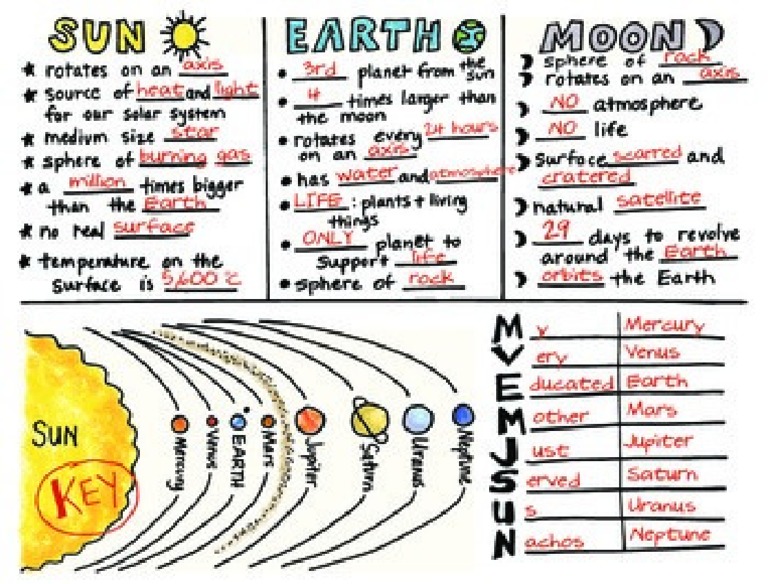 SUN
* rotates on an axis
* source of heat and light
for our solar system
* medium size star
* sphere of burning gas
* a million times bigger
than the Earth
* no real surface
* temperature on the
surface is 5,600 °C
EARTH
• 3rd planet from the sun
• 4 times larger than
the moon
• rotates every 24 hours
on an axis
• has water and atmosphere
• LIFE: plants + living
things
• ONLY planet to
support life
• sphere of rock
MOON
sphere of rock
rotates on an axis
NO atmosphere
NO life
surface scarred and
cratered
natural satellite
29 days to revolve
around the Earth
orbits the Earth
SUN
KEY
Mercury
Venus
EARTH
Mars
Jupiter
Saturn
Uranus
Neptune
My Mercury
Very Venus
Educated Earth
Mother Mars
Just Jupiter
Served Saturn
Us Uranus
Nachos Neptune